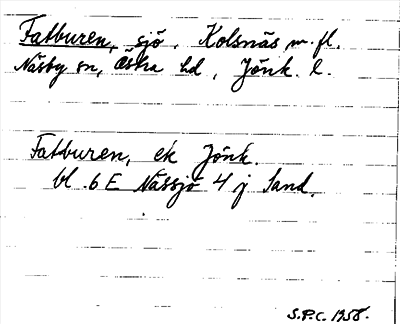 Fatburen, sjö, Kolsnäs m. fl.
Näsby sn, Östra hd, Jönk. l.
Fatburen, ek Jönk.
bl. 6 E Nässjö 4 j Sand.
S.P.C. 1958.